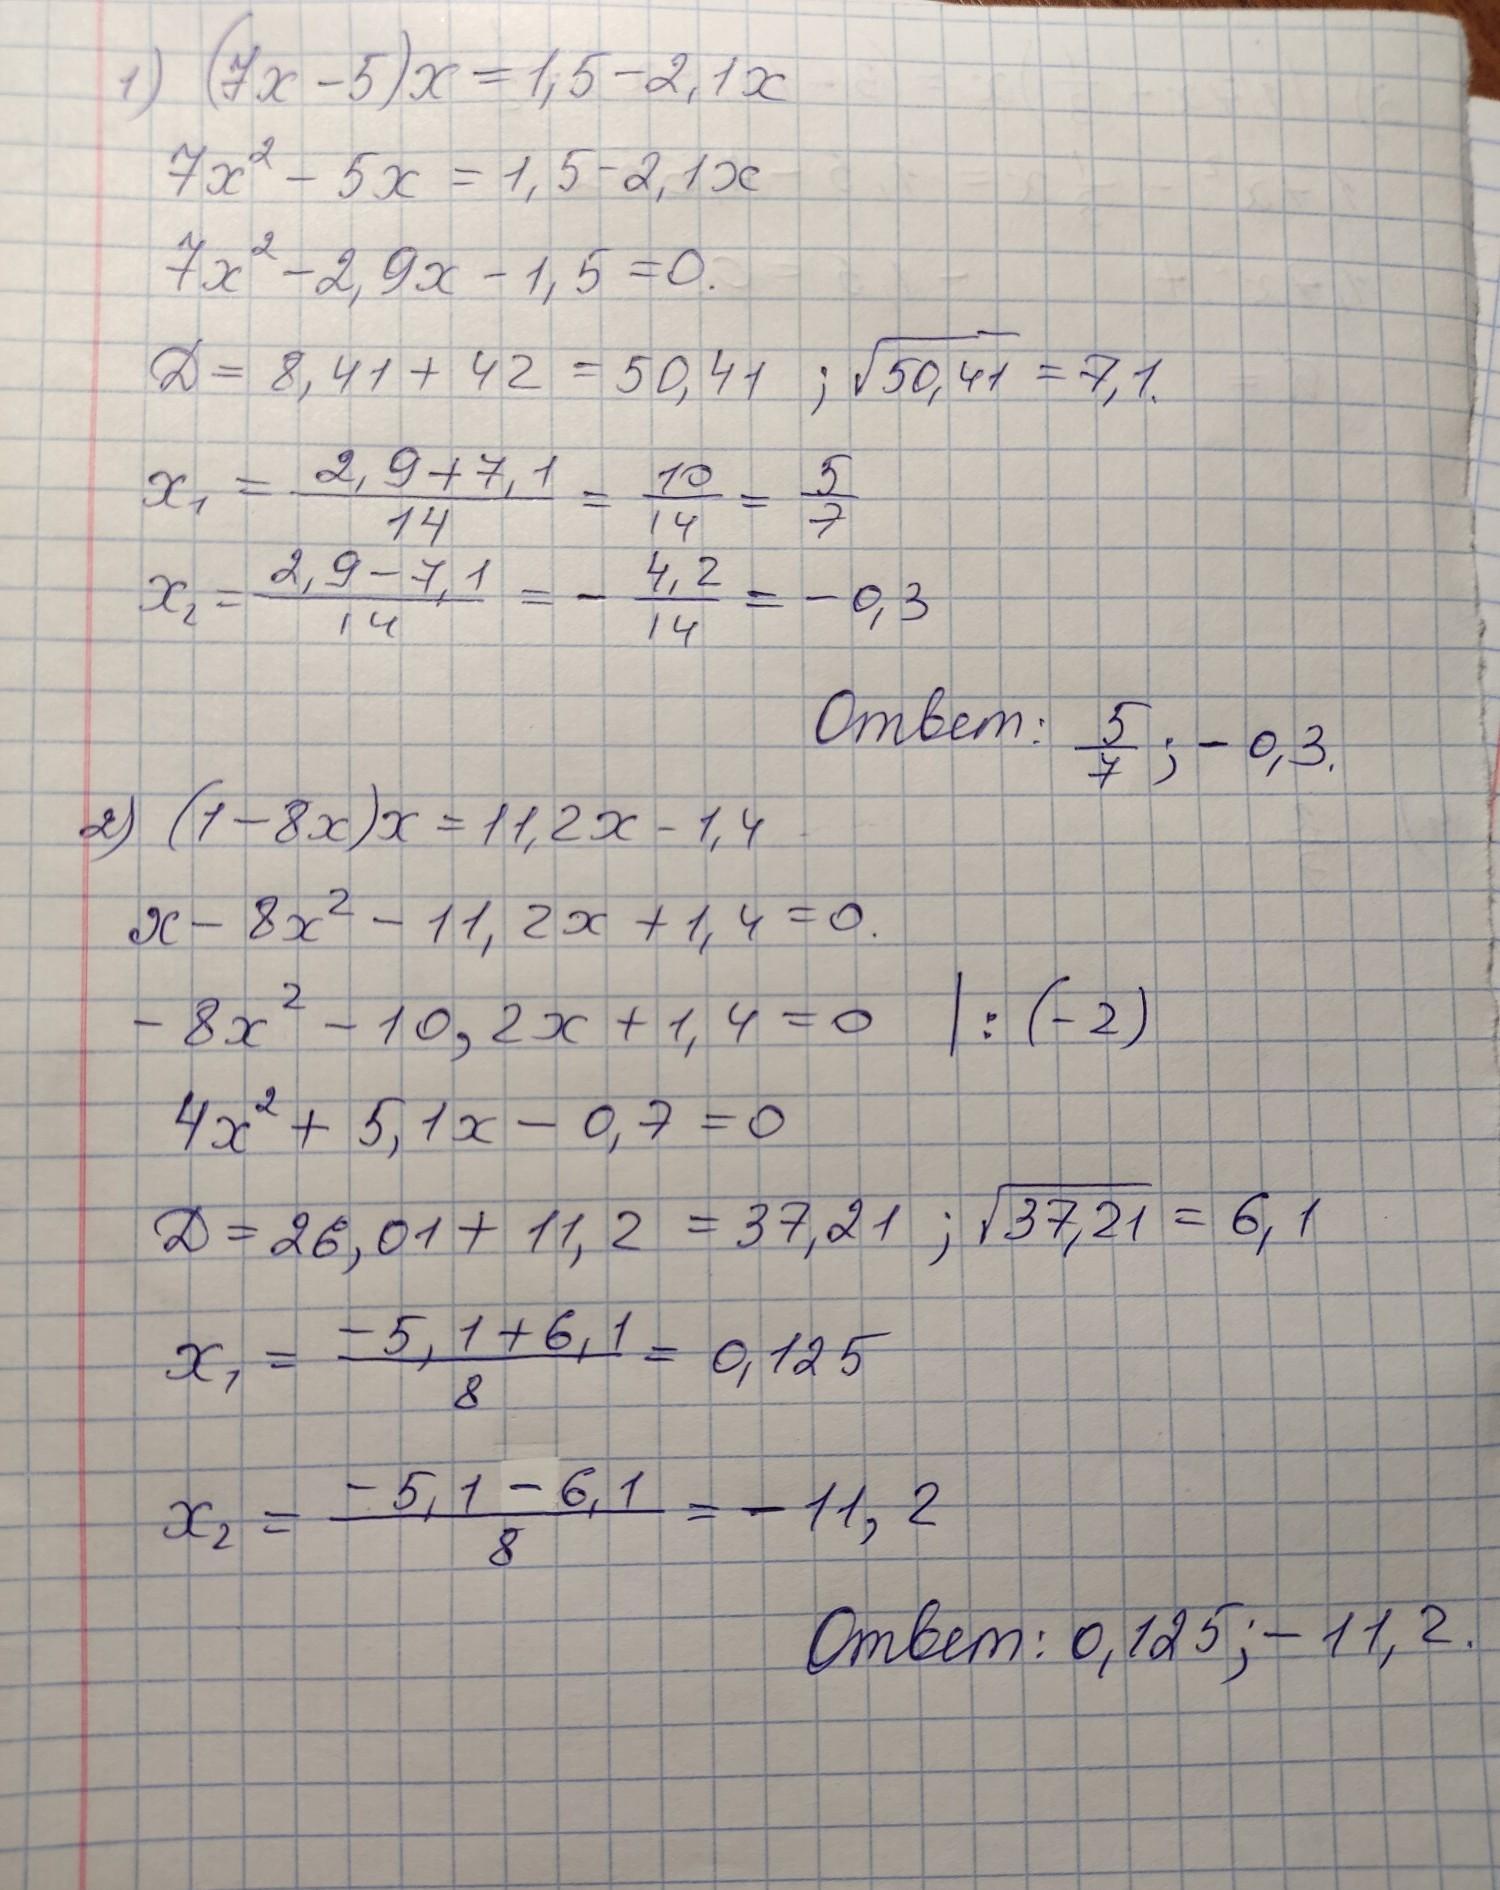 1) (7x-5)x=1,5-2,1x
7x² - 5x = 1,5-2,1x
7x² - 2,9x - 1,5 = 0.
D = 8,41 + 42 = 50,41 ; √50,41 = 7,1.
x₁ = (2,9+7,1)/14 = 10/14 = 5/7
x₂ = (2,9-7,1)/14 = - 4,2/14 = -0,3
Ответ: 5/7 ; - 0,3.
2) (1-8x)x = 11,2x - 1,4
x - 8x² - 11,2x + 1,4 = 0.
- 8x² - 10,2x + 1,4 = 0 | : (-2)
4x² + 5,1x - 0,7 = 0
D = 26,01 + 11,2 = 37,21 ; √37,21 = 6,1
x₁ = (-5,1+6,1)/8 = 0,125
x₂ = (-5,1-6,1)/8 = - 11,2
Ответ: 0,125; - 11,2.